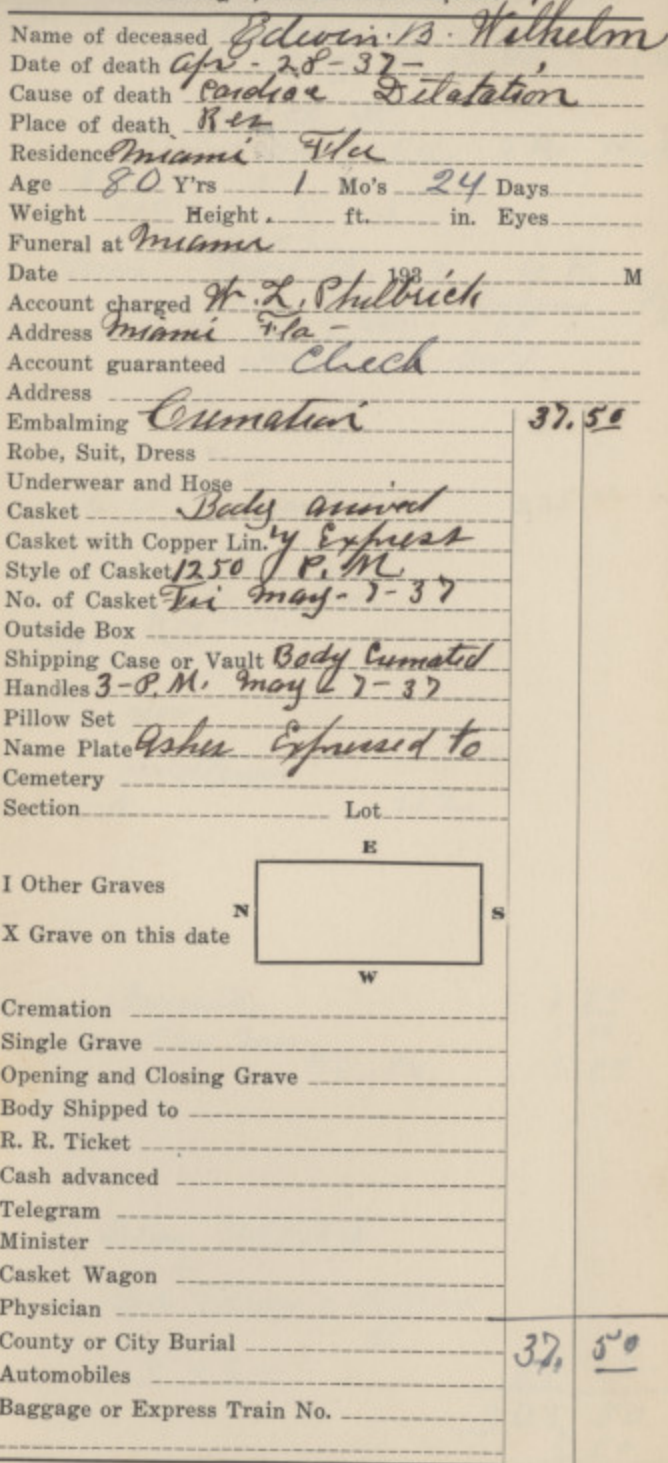 Name of deceased Edwin. B. Wilhelm
Date of death Apr - 28-37-
Cause of death Cardiac Dilatation
Place of death Res
Residence Miami Fla
Age 80 Y'rs 1 Mo's 24 Days
Weight Height ft. in. Eyes
Funeral at Miami
Date 193 M
Account charged W. L. Philbrick
Address Miami Fla -
Account guaranteed Check
Address
Embalming Cremation 37.50
Robe, Suit, Dress
Underwear and Hose
Casket Body arrived
Casket with Copper Lin. By Express
Style of Casket 1250 P.M.
No. of Casket Fri May - 7-37
Outside Box
Shipping Case or Vault Body Cremated
Handles 3-P.M. May - 7-37
Pillow Set
Name Plate Ashes Expressed to
Cemetery
Section Lot
E
I Other Graves
N S
X Grave on this date
W
Cremation
Single Grave
Opening and Closing Grave
Body Shipped to
R. R. Ticket
Cash advanced
Telegram
Minister
Casket Wagon
Physician
County or City Burial 37.50
Automobiles
Baggage or Express Train No.